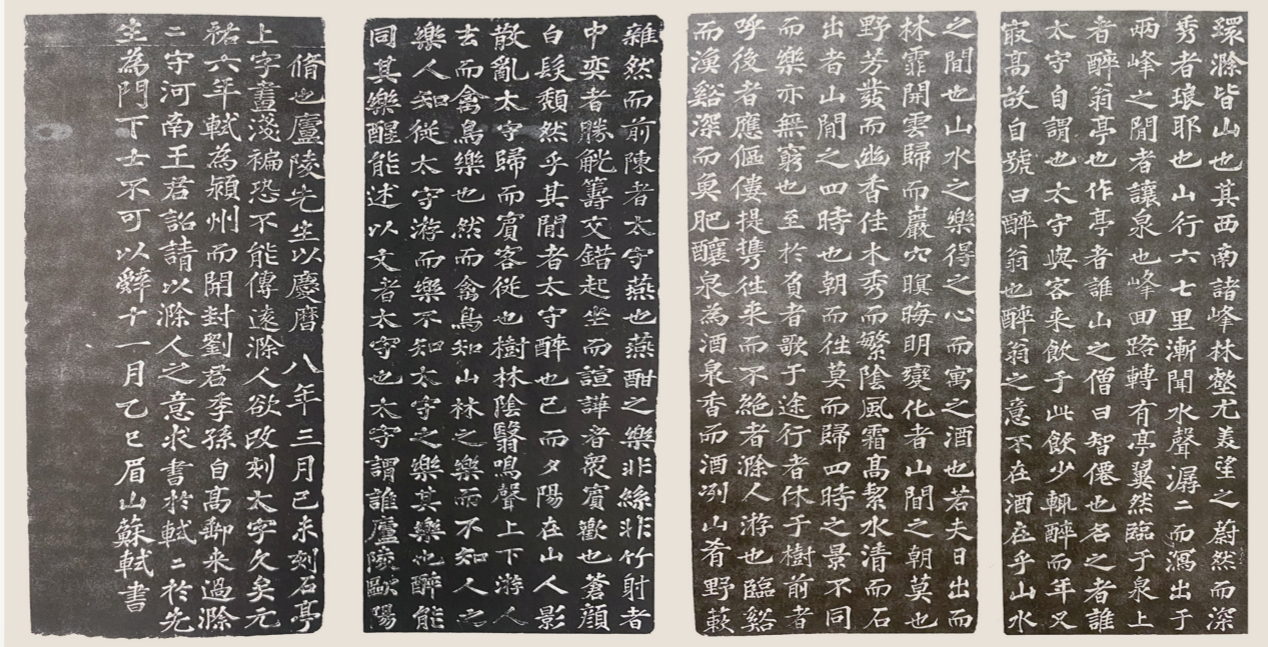 環滁皆山也其西南諸峰林壑尤羙望之蔚然而深
秀者琅耶也山行六七里漸聞水聲潺二而瀉出于
兩峰之閒者讓泉也峰回路轉有亭翼然臨于泉上
者醉翁亭也作亭者誰山之僧曰智僊也名之者誰
太守自謂也太守與客来飲于此飲少輒醉而年又
冣高故自號曰醉翁也醉翁之意不在酒在乎山水
之間也山水之樂得之心而寓之酒也若夫日出而
林霏開雲歸而巖穴暝晦明變化者山間之朝莫也
野芳發而幽香佳木秀而繁陰風霜高絜水清而石
出者山閒之四時也朝而往莫而歸四時之景不同
而樂亦無窮也至於負者歌于途行者休于樹前者
呼後者應傴僂提攜往来而不絶者滁人游也臨谿
而漁谿深而魚肥釀泉為酒泉香而酒冽山肴野蔌
雜然而前陳者太守燕也燕酣之樂非絲非竹射者
中奕者勝觥籌交錯起坐而諠譁者衆賓歡也蒼顔
白髮頹然乎其閒者太守醉也已而夕陽在山人影
散亂太守歸而賓客從也樹林陰翳鳴聲上下游人
去而禽鳥樂也然而禽鳥知山林之樂而不知人之
樂人知從太守游而樂不知太守之樂其樂也醉能
同其樂醒能述以文者太守也太守謂誰廬陵歐陽
脩也廬陵先生以慶曆八年三月己未刻石亭
上字畫淺褊恐不能傳遠滁人欲改刻大字久矣元
祐六年軾為潁州而開封劉君季孫自高郵来過滁
二守河南王君詔請以滁人之意求書於軾二於先
生為門下士不可以辭十一月乙巳眉山蘇軾書